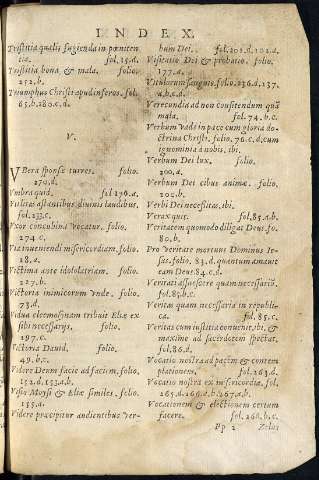 INDEX.
Tristitia qualis fugienda in pœniten
tia. fol. 15.d.
Tristitia bona, & mala. folio.
252.b.
Triumphus Christi apud inferos. fol.
65.b.180.c.d.
V.
VBera sponsæ turres. folio.
270.d.
Umbra quid. fol 136.a.
Vtilitas astantibus divinis laudibus.
fol. 233.c.
Vxor concubina vocatur. folio.
274.c.
Via inueniendi misericordiam. folio.
18.a.
Victima ante idololatriam. folio.
127.b.
Victoria inimicorum vnde. folio.
73.d.
Vidua eleemosinam tribuit Eliæ ex
sibi necessarijs. folio.
197.c.
Victoria Dauid. folio.
49.b.c.
Videre Deum facie ad faciem. folio.
152.d.153.a.b.
Visio Moysi & Eliæ similes. folio.
155.d.
Videre præcipitur audientibus ver-
bum Dei. fol. 201.d.202.a.
Visitatio Dei & probatio. folio.
177.a.
Vitulorum sanguis. folio. 136.d.137.
a.b.c.d.
Verecundia ad non confitendum quã
mala. fol. 74.b.c.
Verbum vade in pace cum gloria do-
ctrina Christi. folio. 76.c.d. cum
ignominia à nobis. ibi.
Verbum Dei lux. folio.
200.a.
Verbum Dei cibus animæ. folio.
200.b.
Verbi Dei necessitas. ibi.
Verax quis. fol. 85.a.b.
Veritatem quomodo diligat Deus. fo.
80.b.
Pro veritate mortuus Dominus Ie-
sus. folio. 83.d. quantum amauit
eam Deus. 84.c.d.
Veritati assuescere quam necessariũ.
fol. 85.b.c.
Veritas quam necessaria in republi-
ca. fol. 85.c.
Veritas cum iustitia conuenit. ibi, &
maxime ad sacerdotem spectat.
fol. 86.d.
Vocatio nostra ad pacem & contem
plationem. fol. 263.d.
Vocatio nostra ex misericordia. fol.
265.d.266.a.b.267.a.b.
Vocationem & electionem certam
facere. fol. 268.b.c.
Pp 2 Zelus